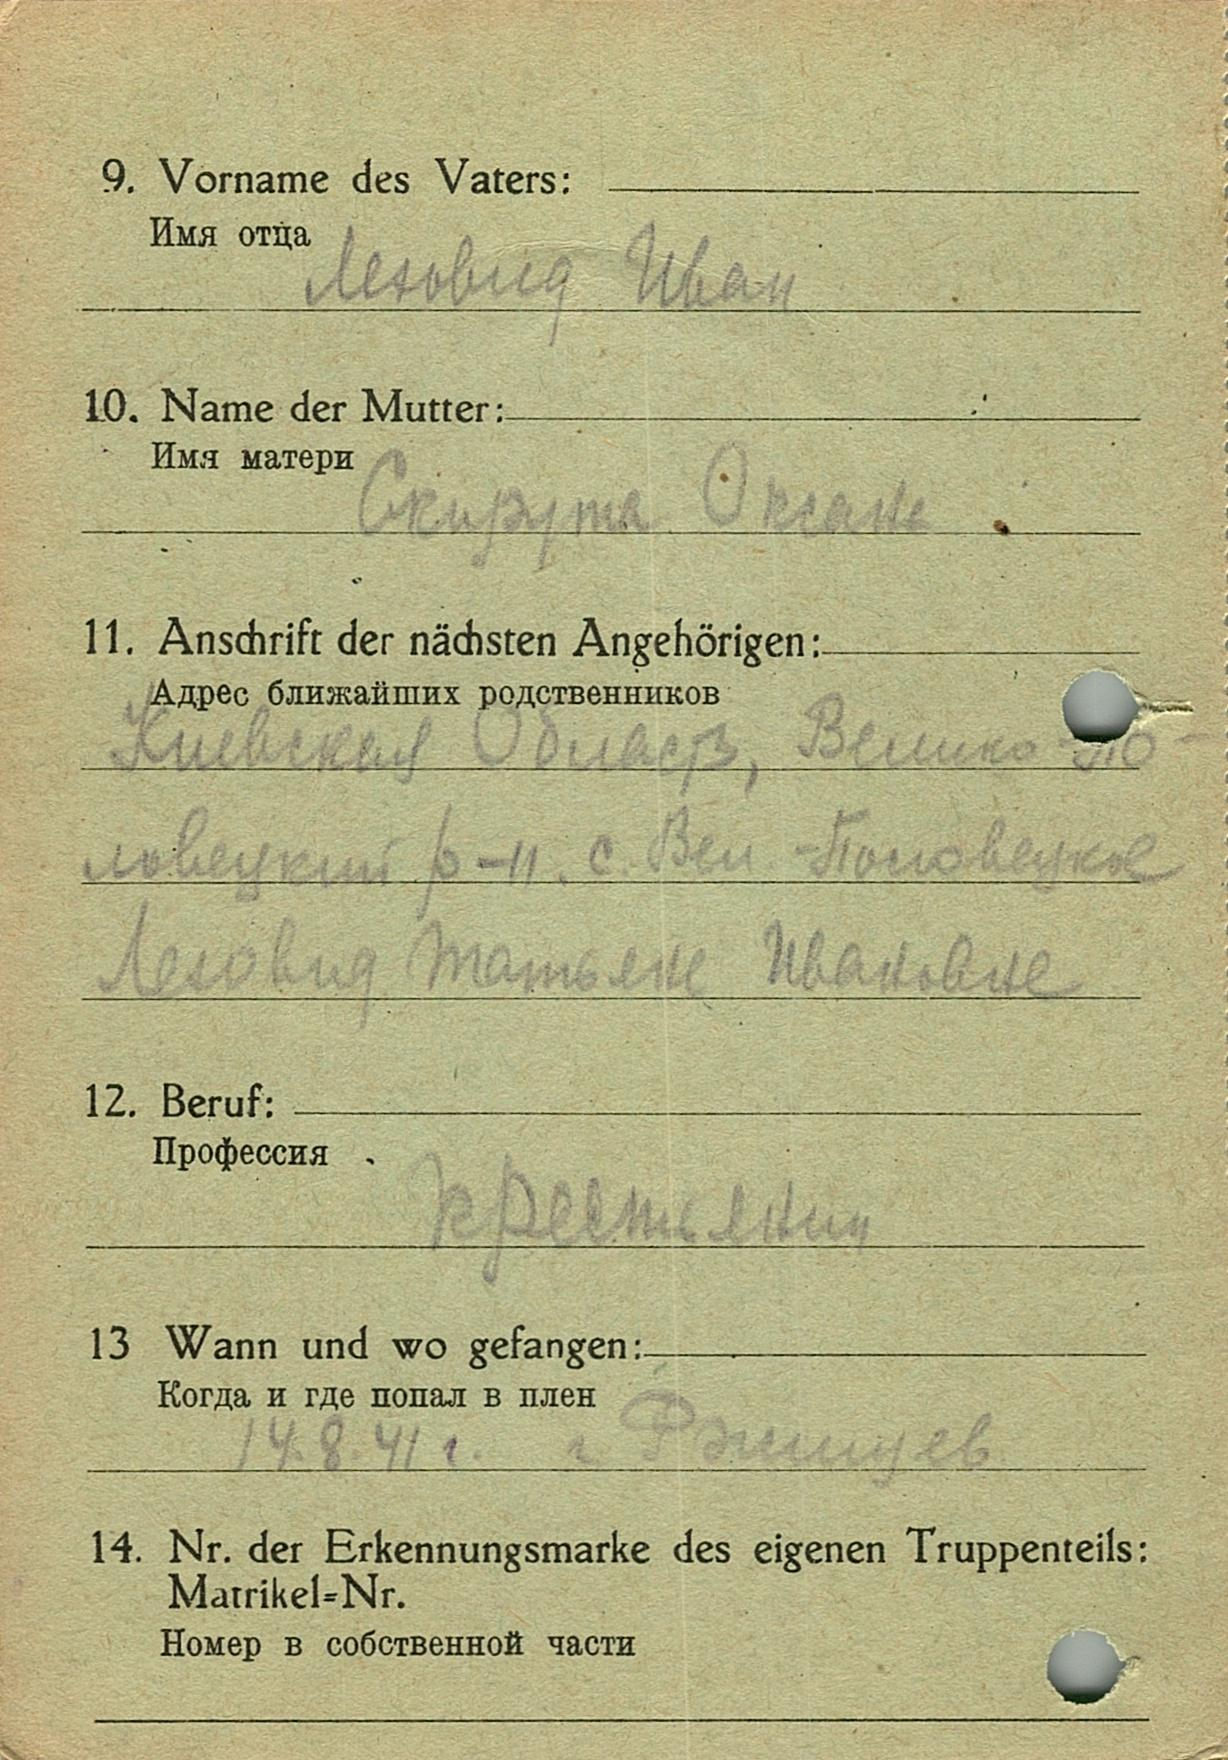 9. Vorname des Vaters:
Имя отца
Леховид Иван
10. Name der Mutter:
Имя матери
Скирута Оксана
11. Anschrift der nächsten Angehörigen:
Адрес ближайших родственников
Киевская Область, Велико-По-
ловецкий р-н. с. Вел.-Половецкое
Леховид Татьяне Ивановне
12. Beruf:
Профессия
крестьянин
13 Wann und wo gefangen:
Когда и где попал в плен
14.8.41 г. г Ржищев
14. Nr. der Erkennungsmarke des eigenen Truppenteils:
Matrikel=Nr.
Номер в собственной части